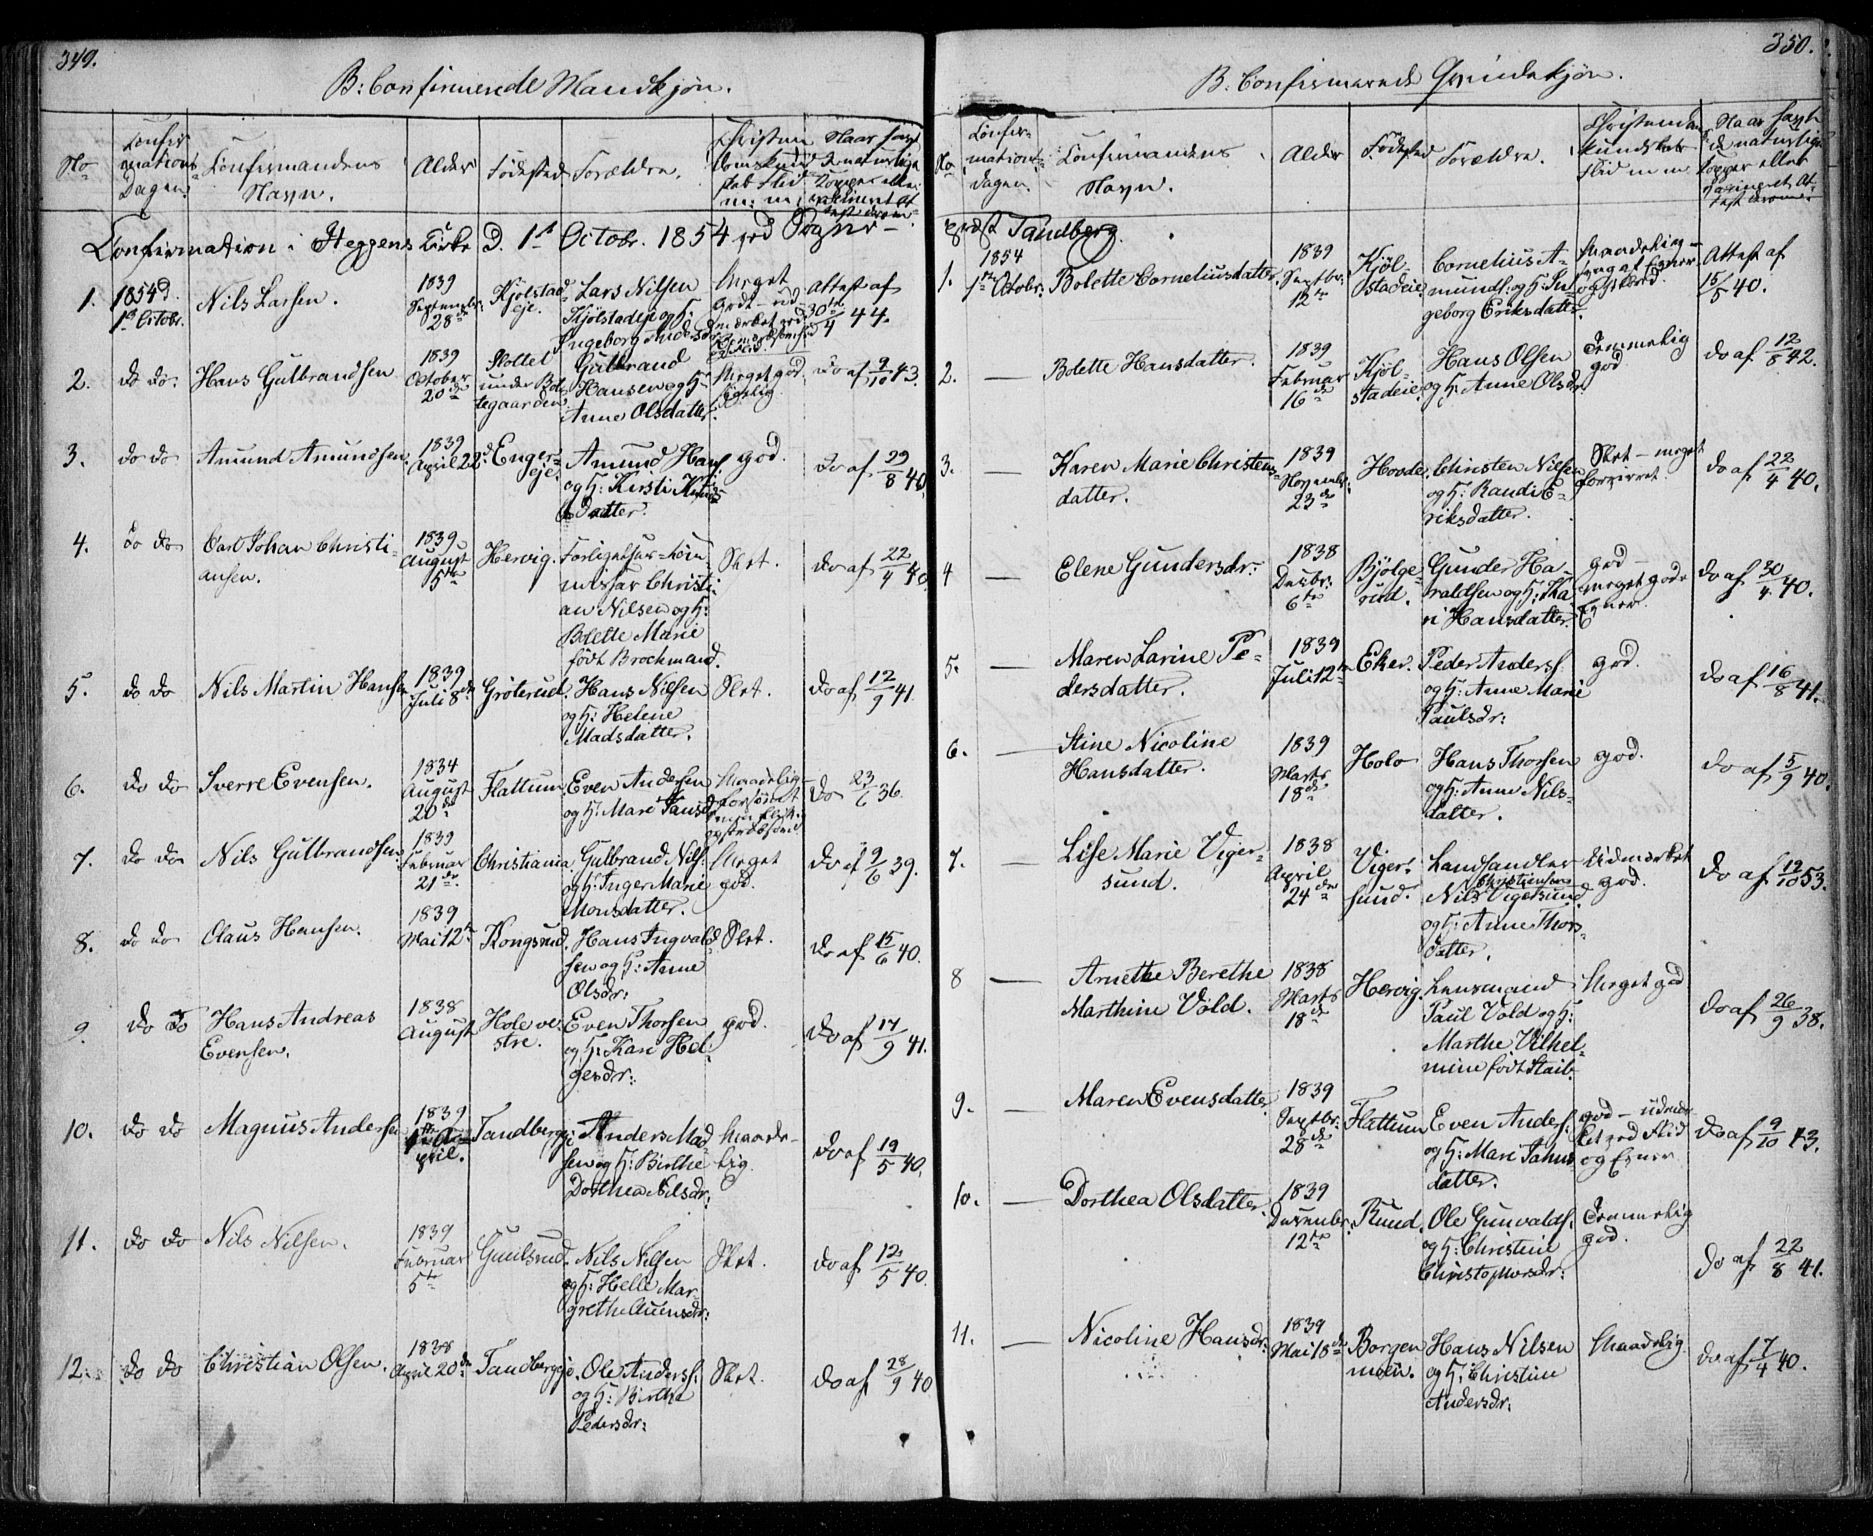 349.
B: Confirmerede Mandkjøn.
No
Confirmations Dagen.
Confirmandens Navn.
Alder
Fødested
Forældre.
Confirmation i Heggens Kirke d. 1st Octobr. 1854 ved Sogne-
1. 1854 d. 1st Octobr. Nils Larsen. 1839 September 28de Kjølstad eje. Lars Nilsen Kjølstadeje og H: Ingeborg Andersdr Meget Attest af 30te/4 44.
2. do do. Hans Gulbrandsen 1839 October 20de Gulbrand Hansen og H: Anne Olsdatter. Meget god, do af 9/10 43.
3. do do Amund Amundsen 1839 April 22de Enger eje. Amund Hans. og H: Kirsti datter. god. do af 29/8 40
4. do do Carl Johan Christiansen. 1839 August 5te Hervig. Forligelses-Commissær Christian Nilsen og H: Bolette Marie født Brochmand. Slet. do af 22/4 40
5. do do Nils Martin Hansen 1839 Juli 8de Grøterud. Hans Nilsen og H: Helene Madsdatter. Slet. do af 12/9 41
6. do do Sverre Evensen. 1834 August 20de Flattum. Even Andersen og H: Mari Maadelig do 23/6 36.
7. do do Nils Gulbrandsen 1839 Februar 21de. Christiania Gulbrand Nils: og H: Inger Marie Monsdatter. Meget god. do af 9/6 39.
8. do do Olaus Hansen. 1839 Mai 12te Kongsrud. Hans Ingvaldsen og H: Anne Olsdr: Slet. do af 15/6 40.
9. do do Hans Andreas Evensen. 1838 August Hole vestre. Even Thorsen og H: Kari Helgesdr: god. do af 17/9 41.
10. do do Magnus Andersen 1839 April. Tandbergeje Anders Madsen og H: Birthe Dorthea Nilsdr: Maadelig. do af 19/5 40.
11. do do Nils Nilsen. 1839 Februar 5te Gunilsrud. Nils Nilsen og H: Helle Margrethe Auensdr: Slet. do af 12/5 40.
12. do do Christian Olsen. 1838 April 20de Tandbergeje. Ole Anders: og H: Birthe Pedersdr: Slet. do af 28/9 40
350.
B: Confirmerede Qvindekjøn.
No
Confirmationsdagen.
Confirmandens Navn.
Alder
Fødested
Forældre.
Christendomskundskab Flid m m.
præst Tandberg.
1. 1854 1ste Octobr: Bolette Corneliusdatter 1839 Septbr: 12te Kjølstadeie. Cornelius Amunds: og H: Ingeborg Eriksdatter Maadelig - Attest af 15/5 40.
2. — Bolette Hansdatter. 1839 Februar 16de Kjølstadeie. Hans Olsen og H: Anne Olsdr: Temmelig god. do af 12/8 42.
3. — Karen Marie Christensdatter. 1839 Novembr: 23de Hovde. Christen Nilsen og H: Randi Eriksdatter. Slet - meget forvirret. do af 22/4 40.
4 — Elene Gundersdr: 1838 Decbr: 6te Bjølgerud. Gunder Haraldsen og H: Kari Hansdatter. god - meget gode Evner. do af 30/4. 40.
5. — Maren Larine Pedersdatter. 1839 Juli 12te Eker. Peder Anders: og H: Anne Marie Paulsdr: god. do af 16/8 41.
6. — Stine Nicoline Hansdatter. 1839 Marts 18de Holo Hans Thorsen og H: Anne Nilsdatter. god. do af 5/9 40.
7. — Lise Marie Vigersund. 1838 April 24de Vigersund. Landhandler Nils Christiansen Vigersund og H: Anne Thorsdatter. Udmærket god. do af 12/10 53.
8 — Anethe Berethe Marthine Vold. 1838 Marts 18de Hervig. Lensmand Paul Vold og H: Marthe Vilhelmine født Staib. Meget god do af 26/9 38.
9. — Maren Evensdatter 1839 Septbr. 28de Flattum Even Anders: og H: Mari Jahnsdatter. god - udmærket god Flid og Evner. do af 9/10 43.
10. — Dorthea Olsdatter. 1839 Decembr: 12te Ruud. Ole Gunvalds: og H: Christine Christophersdr: Temmelig god. do af 22/8 41.
11. — Nicoline Hansdr: 1839 Mai 18de Borgen moen. Hans Nilsen og H: Christine Andersdr: Maadelig. do af 7/4 40.